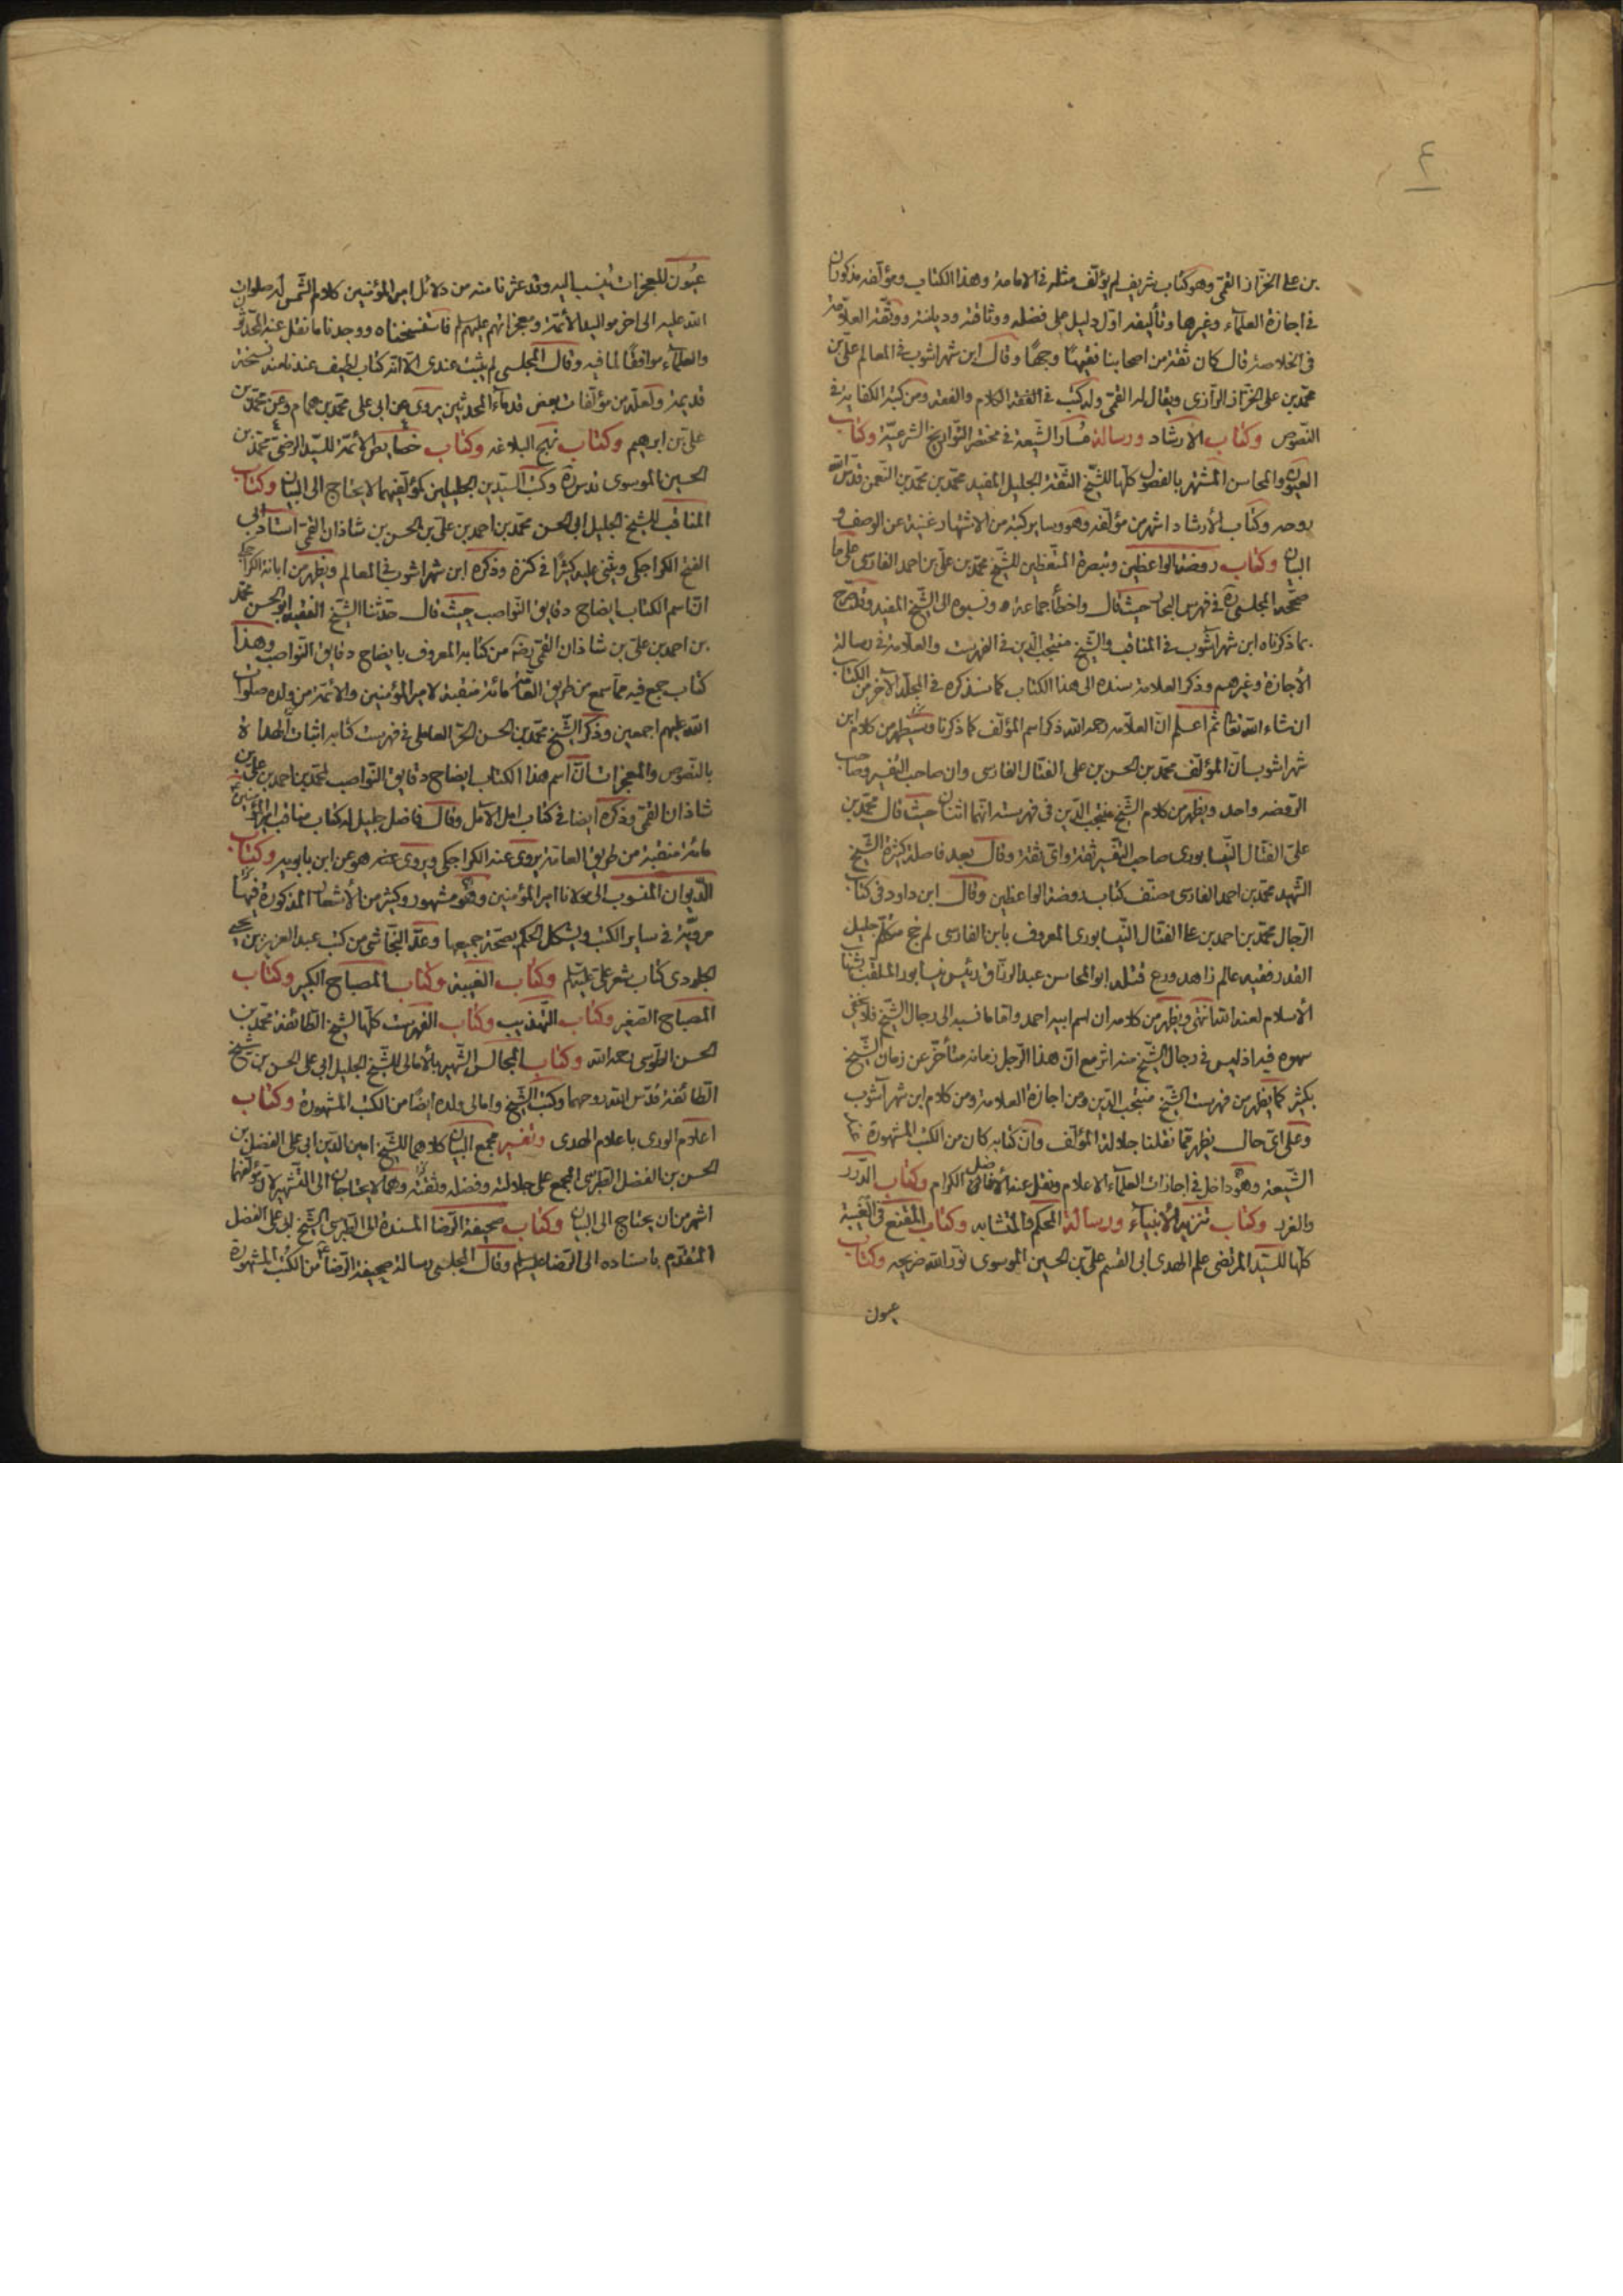 ٤
بن علي الخزاز القمي وهو كتاب شريف لم يؤلف مثله في الامامة وهذا الكتاب ومؤلفه مذكوران
في اجازة العلماء وغيرها وتأليفه اول دليل على فضله ووثاقته وديانته ووثقه العلامة
في الخلاصة قال كان ثقة من اصحابنا فقيها وجها وقال ابن شهراشوب في المعالم علي بن
محمد بن علي الخزاز الرازي ويقال له القمي وله كتب في الفقه الكلام والفقه ومن كتبه الكفاية في
النصوص وكتاب الارشاد ورسالة مسار الشيعة في مختصر التواريخ الشرعية وكتاب
العيون والمحاسن المشتهر بالفصول كلها للشيخ الثقة الجليل المفيد محمد بن محمد بن النعمن قدس الله
روحه وكتاب الأرشاد اشهر من مؤلفه وهو وساير كتبه من الاشتهار غنية عن الوصف و
البيان وكتاب روضة الواعظين وتبصرة المتعظين للشيخ محمد بن علي بن احمد الفارسي على ما
صححه المجلسي ره في فهرس البحار حيث قال واخطأ جماعة ونسبوه الى الشيخ المفيد وقد صرح
بما ذكرناه ابن شهراشوب في المناقب والشيخ منتجب الدين في الفهرست والعلامة في رسالة
الأجازة وغيرهم وذكر العلامة سنده الى هذا الكتاب كما سنذكره في المجلد الآخر من الكتاب
ان شاء الله تعا ثم اعلم ان العلامة رحمه الله ذكر اسم المؤلف كما ذكرنا وسيظهر من كلام ابن
شهراشوب ان المؤلف محمد بن الحسن بن علي الفتال الفارسي وان صاحب التفسير وصاحب
الروضه واحد ويظهر من كلام الشيخ منتجب الدين في فهرسته انهما اثنان حيث قال محمد بن
علي الفتال النيسابوري صاحب التفسير ثقة واي ثقة وقال بعد فاصلة كثيرة الشيخ
الشهيد محمد بن احمد الفارسي مصنف كتاب روضة الواعظين وقال ابن داود في كتاب
الرجال محمد بن احمد بن علي الفتال النيسابوري المعروف بابن الفارسي لم جخ متكلم جليل
القدر فقيه عالم زاهد ورع قتله ابو المحاسن عبد الرزاق رئيس نيسابور الملقب بشهاب
الأسلام لعنه الله انتهى ويظهر من كلامه ان اسم ابيه احمد واما ما نسبه الى رجال الشيخ فلا يخفى
سهوه فيه اذ ليس في رجال الشيخ منه اثر مع ان هذا الرجل زمانه متأخر عن زمان الشيخ
بكثير كما يظهر من فهرست الشيخ منتجب الدين ومن اجازة العلامة ومن كلام ابن شهرآشوب
وعلى اي حال يظهر مما نقلنا جلالة المؤلف وان كتابه كان من الكتب المشهورة عند
الشيعة وهو داخل في اجازات العلماء الاعلام ونقل عنه الأفاضل الكرام وكتاب الدرر
والغرر وكتاب تنزيه الأنبياء ورسالة المحكم والمتشابه وكتاب المقنع في الغيبة
كلها للسيد المرتضى علم الهدى ابي القسم علي بن الحسين الموسوي نور الله ضريحه وكتاب
عيون
عيون المعجزات ينسب اليه وقد عثرنا منه من دلائل امير المؤمنين كلام الشمس له صلوات
الله عليه الى اخر مواليد الأئمة ومعجزاتهم عليهم سلم فاستنسخناه ووجدنا ما نقل عنه المحدثون
والعلماء موافقا لما فيه وقال المجلسي لم يثبت عندي الا انه كتاب لطيف عندنا منه نسخة
قديمة ولعله من مؤلفات بعض قدماء المحدثين يروي عن ابي علي محمد بن همام وعن محمد بن
علي بن ابرهيم وكتاب نهج البلاغه وكتاب خصايص الأئمة للسيد الرضي محمد بن
الحسين الموسوي قدس سره وكتب السيدين الجليلين كمؤلفيهما لا يحتاج الى البيان وكتاب
المناقب للشيخ الجليل ابي الحسن محمد بن احمد بن علي بن الحسن بن شاذان القمي استاد ابي
الفتح الكراجكي ويثني عليه كثيرا في كنزه وذكره ابن شهراشوب في المعالم ويظهر من ابانة الكراجكي
ان اسم الكتاب ايضاح دفاين النواصب حيث قال حدثنا الشيخ الفقيه ابو الحسن محمد
بن احمد بن علي بن شاذان القمي رضه من كتابه المعروف بايضاح دفاين النواصب وهذا
كتاب جمع فيه مما سمع من طريق العامة مائة منقبة لامير المؤمنين والائمة من ولده صلوات
الله عليهم اجمعين وذكر الشيخ محمد بن الحسن الحر العاملي في فهرست كتابه اثبات الهداة
بالنصوص والمعجزات ان اسم هذا الكتاب ايضاح دفاين النواصب لمحمد بن احمد بن علي بن
شاذان القمي وذكره ايضا في كتاب امل الآمل وقال فاضل جليل له كتاب مناقب امير المؤمنين
مائة منقبة من طريق العامة يروي عنه الكراجكي ويروي عنه هو عن ابن بابويه وكتاب
الديوان المنسوب الى مولانا امير المؤمنين وهو مشهور وكثير من الأشعار المذكورة فيها
مروية في ساير الكتب ويشكل الحكم بصحة جميعها وعد النجاشي من كتب عبد العزيز بن يحيى
الجلودي كتاب شعر علي عليه سلم وكتاب الغيبة وكتاب المصباح الكبير وكتاب
المصباح الصغير وكتاب التهذيب وكتاب الفهرست كلها لشيخ الطائفة محمد بن
الحسن الطوسي رحمه الله وكتاب المجالس الشهير بالأمالي للشيخ الجليل ابي علي الحسن بن شيخ
الطائفة قدس الله روحهما وكتب الشيخ وامالي ولده ايضا من الكتب المشهورة وكتاب
اعلام الورى باعلام الهدى وتفسير مجمع البيان كلاهما للشيخ امين الدين ابي علي الفضل بن
الحسن بن الفضل الطبرسي المجمع على جلالته وفضله وثقته وهما لا يحتاجان الى التشهير لان مؤلفهما
اشهر من ان يحتاج الى البيان وكتاب صحيفة الرضا المسندة الى الطبرسي الشيخ ابي علي الفضل
المتقدم باسناده الى الرضا عليه سلم وقال المجلسي رسالة صحيفة الرضا ع من الكتب المشهورة